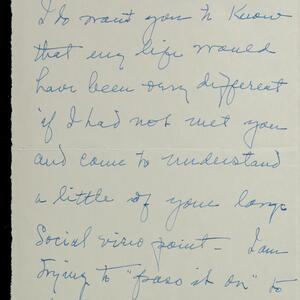 I do want you to know
that my life would
have been very different
if I had not met you
and come to understand
a little of your large
Social view point - I am
trying to "pass it on" to